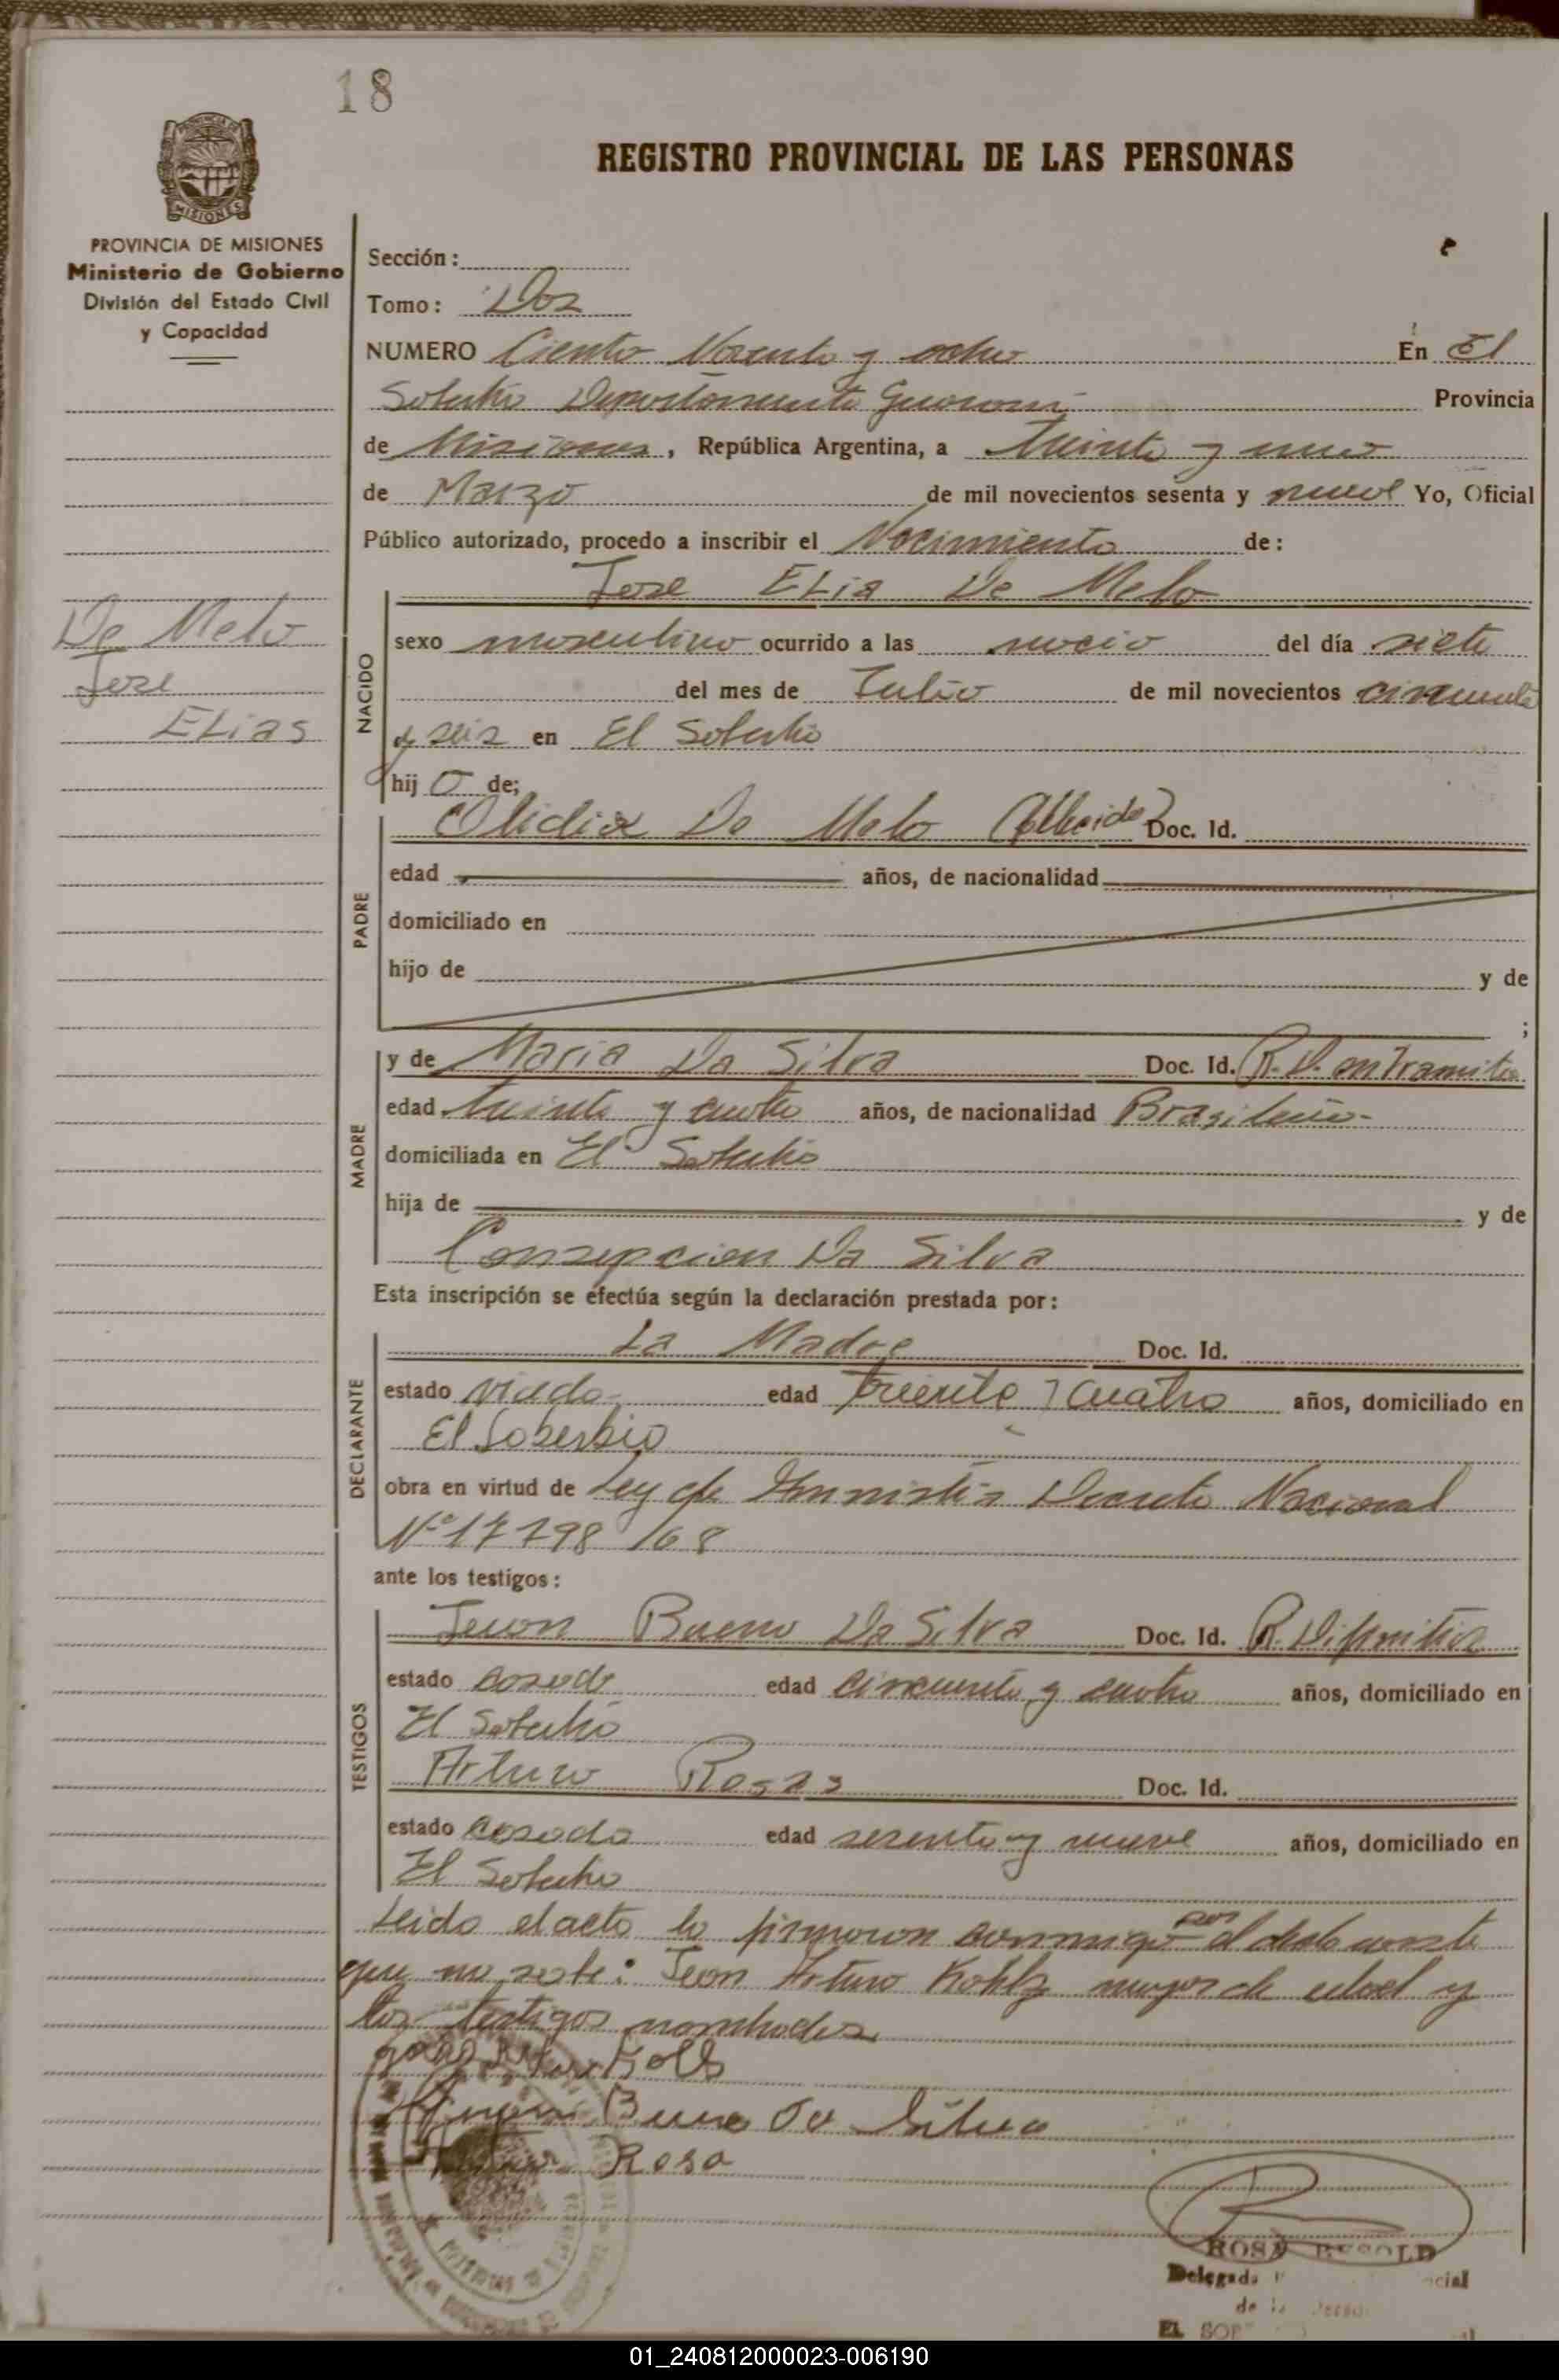 18
REGISTRO PROVINCIAL DE LAS PERSONAS
PROVINCIA DE MISIONES
Ministerio de Gobierno
División del Estado Civil
y Capacidad
Sección:
Tomo: Dos
NUMERO Ciento Noventa y ocho En El
Soberbio Departamento Guarani Provincia
de Misiones, República Argentina, a treinta y uno
de Marzo de mil novecientos sesenta y nueve Yo, Oficial
Público autorizado, procedo a inscribir el Nacimiento de:
Jose Elia De Melo
De Melo
Jose
Elias
NACIDO
sexo masculino ocurrido a las nocio del día siete
del mes de Julio de mil novecientos cincuenta
y seis en El Soberbio
hij o de;
PADRE
Olidia De Melo Doc. Id.
edad años, de nacionalidad
domiciliado en
hijo de y de
;
MADRE
y de Maria Da Silva Doc. Id. R. D. en Tramite
edad treinta y cuatro años, de nacionalidad Brasileña-
domiciliada en El Soberbio
hija de y de
Consepcion Da Silva
Esta inscripción se efectúa según la declaración prestada por:
DECLARANTE
La Madre Doc. Id.
estado viuda edad treinta y cuatro años, domiciliado en
El Soberbio
obra en virtud de Ley de Amnistia Decreto Nacional
Nº 17798/68
ante los testigos:
TESTIGOS
Juan Bueno Da Silva Doc. Id. R. Difinitiva
estado casado edad cincuenta y cuatro años, domiciliado en
El Soberbio
Arturo Rosas Doc. Id.
estado casado edad sesenta y nueve años, domiciliado en
El Soberbio
Leido el acta la firmaron conmigo por el declarante
que no sabe: Juan Arturo Kohlz mayor de edad y
los testigos nombrados
Kolls
Buno Da Silva
Rosa
ROSA BESOLD
Delegada
de la
EL SOB
01_240812000023-006190